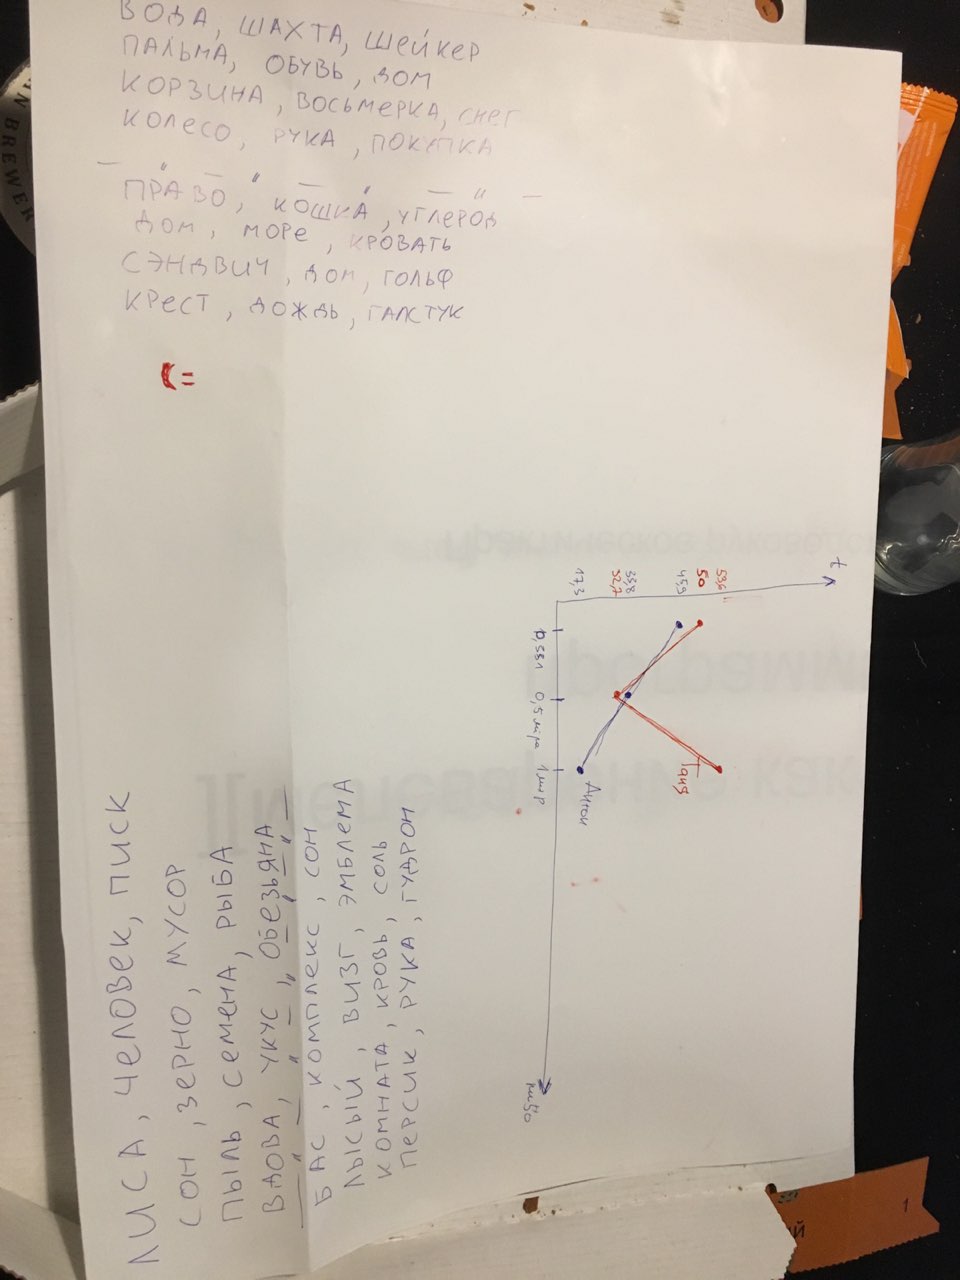 ВОДА, ШАХТА, ШЕЙКЕР
ПАЛЬМА, ОБУВЬ, ДОМ
КОРЗИНА, ВОСЬМЕРКА, СНЕГ
КОЛЕСО, РУКА, ПОКУПКА
ПРАВО, КОШКА, УГЛЕРОД
ДОМ, МОРЕ, КРОВАТЬ
СЭНДВИЧ, ДОМ, ГОЛЬФ
КРЕСТ, ДОЖДЬ, ГАЛСТУК
(=
t
53,6
50
45,9
33,8
32,7
17,3
0,5вл
0,5литра
1литр
Антон
Таня
пиво
ЛИСА, ЧЕЛОВЕК, ПИСК
СОН, ЗЕРНО, МУСОР
ПЫЛЬ, СЕМЕНА, РЫБА
ВДОВА, УКУС, ОБЕЗЬЯНА
БАС, КОМПЛЕКС, СОН
ЛЫСЫЙ, ВИЗГ, ЭМБЛЕМА
КОМНАТА, КРОВЬ, СОЛЬ
ПЕРСИК, РУКА, ГУДРОН
BREWER
1